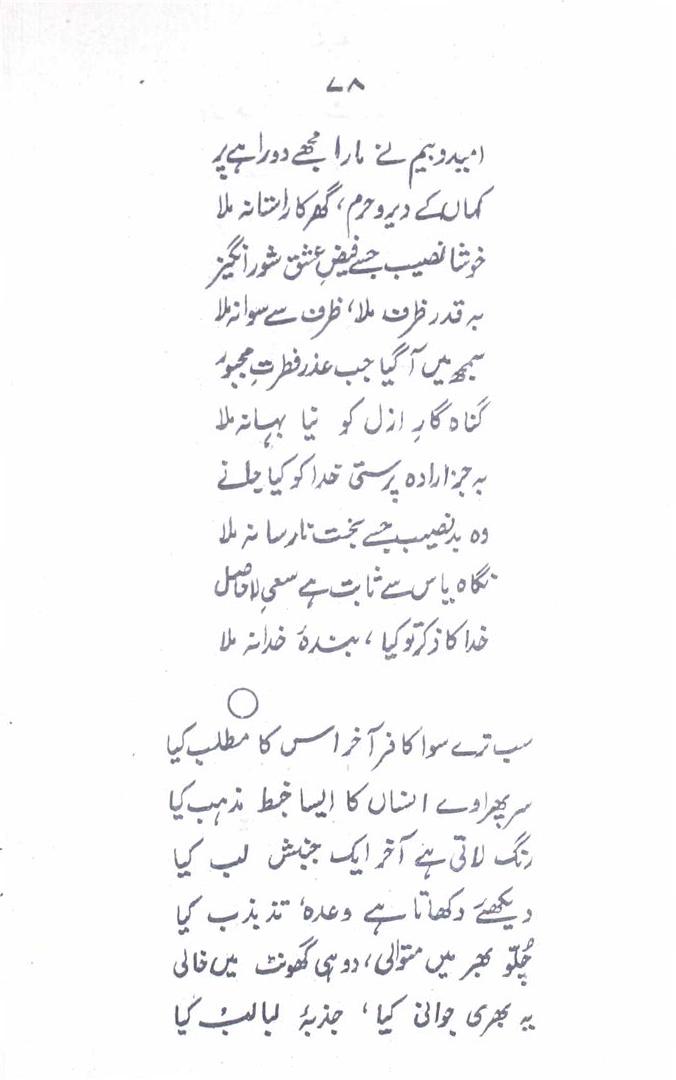 ۷۸
امید و بیم نے مارا مجھے دوراہے پر
کہاں کے دیر و حرم، گھر کا راستا نہ ملا
خوشا نصیب جسے فیضِ عشق شور انگیز
بہ قدر ظرف ملا، ظرف سے سوا نہ ملا
سمجھ میں آ گیا جب عذر فطرتِ مجبور
گناہ گارِ ازل کو نیا بہانہ ملا
بہ جز ارادہ پرستی خدا کو کیا جانے
وہ بد نصیب جسے بخت نارسا نہ ملا
نگاہ یاس سے ثابت ہے سعیِ لاحاصل
خدا کا ذکر تو کیا، بندۂ خدا نہ ملا
سب ترے سوا کافر آخر اس کا مطلب کیا
سر پھرا دے انساں کا ایسا خبط مذہب کیا
رنگ لاتی ہے آخر ایک جنبش لب کیا
دیکھئے دکھاتا ہے وعدۂ تذبذب کیا
چُلّو بھر میں متوالی، دو ہی گھونٹ میں خالی
یہ بھری جوانی کیا، جذبۂ لبالب کیا